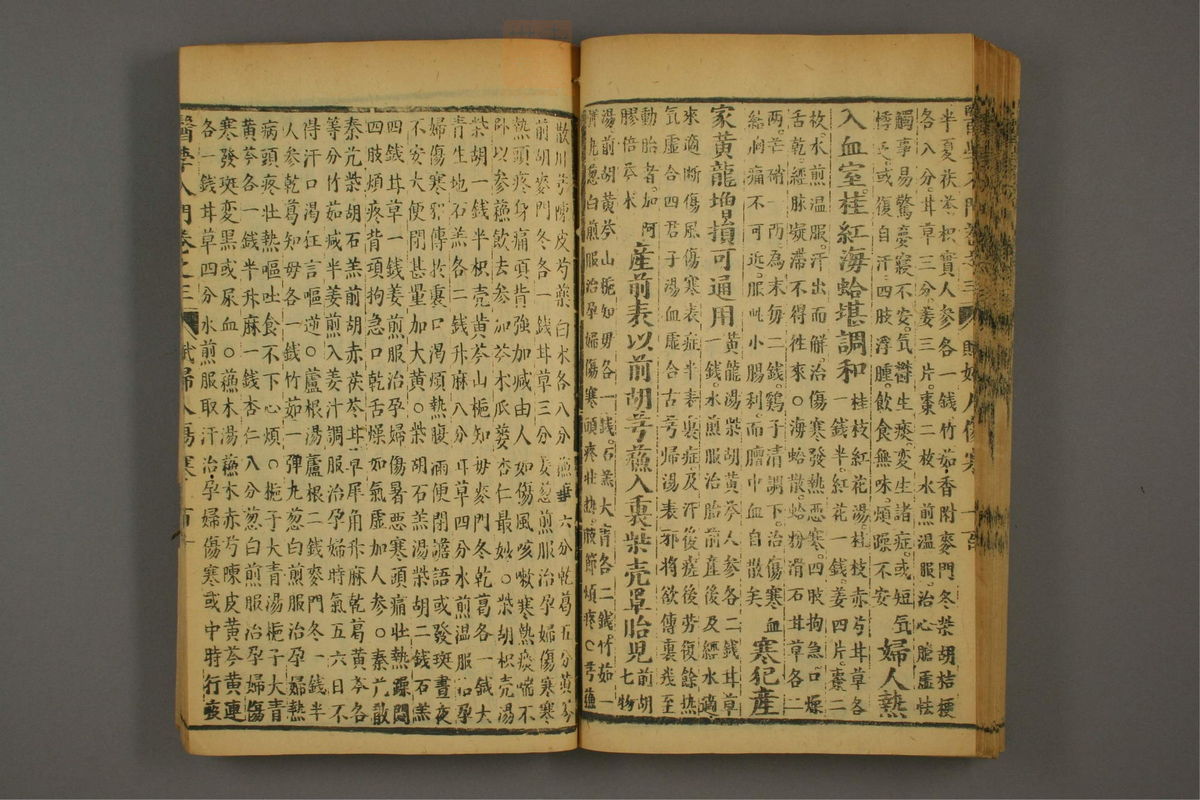 半夏茯苓枳實人參各一錢竹茹香附麥門冬柴胡桔梗
各八分甘草三分姜三片棗二枚水煎溫服治心膽虛怯
觸事易驚夢寢不安氣鬱生痰變生諸症或短氣婦人熱
悸乏或復自汗四肢浮腫飲食無味煩躁不安
入血室桂紅海蛤堪調和桂枝紅花湯桂枝赤芍甘草各一錢半紅花一錢姜四片棗二
枚水煎溫服汗出而解治傷寒發熱惡寒四肢拘急口燥
舌乾經脉凝滯不得徃來○海蛤散蛤粉滑石甘草各二
兩芒硝一兩為末每二錢鷄子清調下治傷寒血寒犯產
結胸痛不可近服此小腸利而膻中血自散矣
家黃龍增損可通用黃龍湯柴胡黃芩人參各二錢甘草一錢水煎服治胎前產後及經水適
來適斷傷風傷寒表症半表裏症及汗後瘥後勞復餘熱
氣虛合四君子湯血虛合古芎歸湯表邪將欲傳裏幾至
動胎者加阿膠倍參朮產前表以前胡芎蘇入裏柴壳罩胎兒前胡七物
湯前胡黃芩山梔知毋各一錢石羔大青各二錢竹茹一
葱白煎服治孕婦傷寒頭疼壯熱肢節煩疼○芎蘓
散川芎陳皮芍藥白朮各八分蘓葉六分乾葛五分黃芩
前胡麥門冬各一錢甘草三分姜葱煎服治孕婦傷寒寒
熱頭疼身痛項背強加減由人如傷風咳嗽寒熱痰喘不
卧以參蘓飲去參加朮瓜蔞杏仁最妙○柴胡枳壳湯
柴胡一錢半枳壳黃芩山梔知毋麥門冬乾葛各一錢大
青生地石羔各二錢升麻八分甘草四分水煎溫服治孕
婦傷寒邪傳於裏口渴煩熱腹滿便閉譫語或發斑晝夜
不安大便閉甚量加大黃○柴胡石羔湯柴胡二錢石羔
四錢甘草一錢姜煎服治孕婦傷暑惡寒頭痛壯熱躁悶
四肢煩疼背項拘急口乾舌燥如氣虛加人參○秦艽散
秦艽柴胡石羔前胡赤茯苓甘草犀角升麻乾葛黃芩各
等分竹茹減半姜煎入姜汁調服治孕婦時氣五六日不
得汗口渴狂言嘔逆○蘆根湯蘆根二錢麥門冬一錢半
人參乾葛知毋各一錢竹茹一彈丸葱白煎服治孕婦熱
病頭疼壯熱嘔吐食不下心煩○梔子大青湯梔子大青
黃芩各一錢半升麻一錢杏仁八分葱白煎服治孕婦傷
寒發斑変黑或尿血○蘓木湯蘓木赤芍陳皮黃芩黃連
各一錢甘草四分水煎服取汗治孕婦傷寒或中時行疫
醫學人門卷之三
賦婦人傷寒
一百